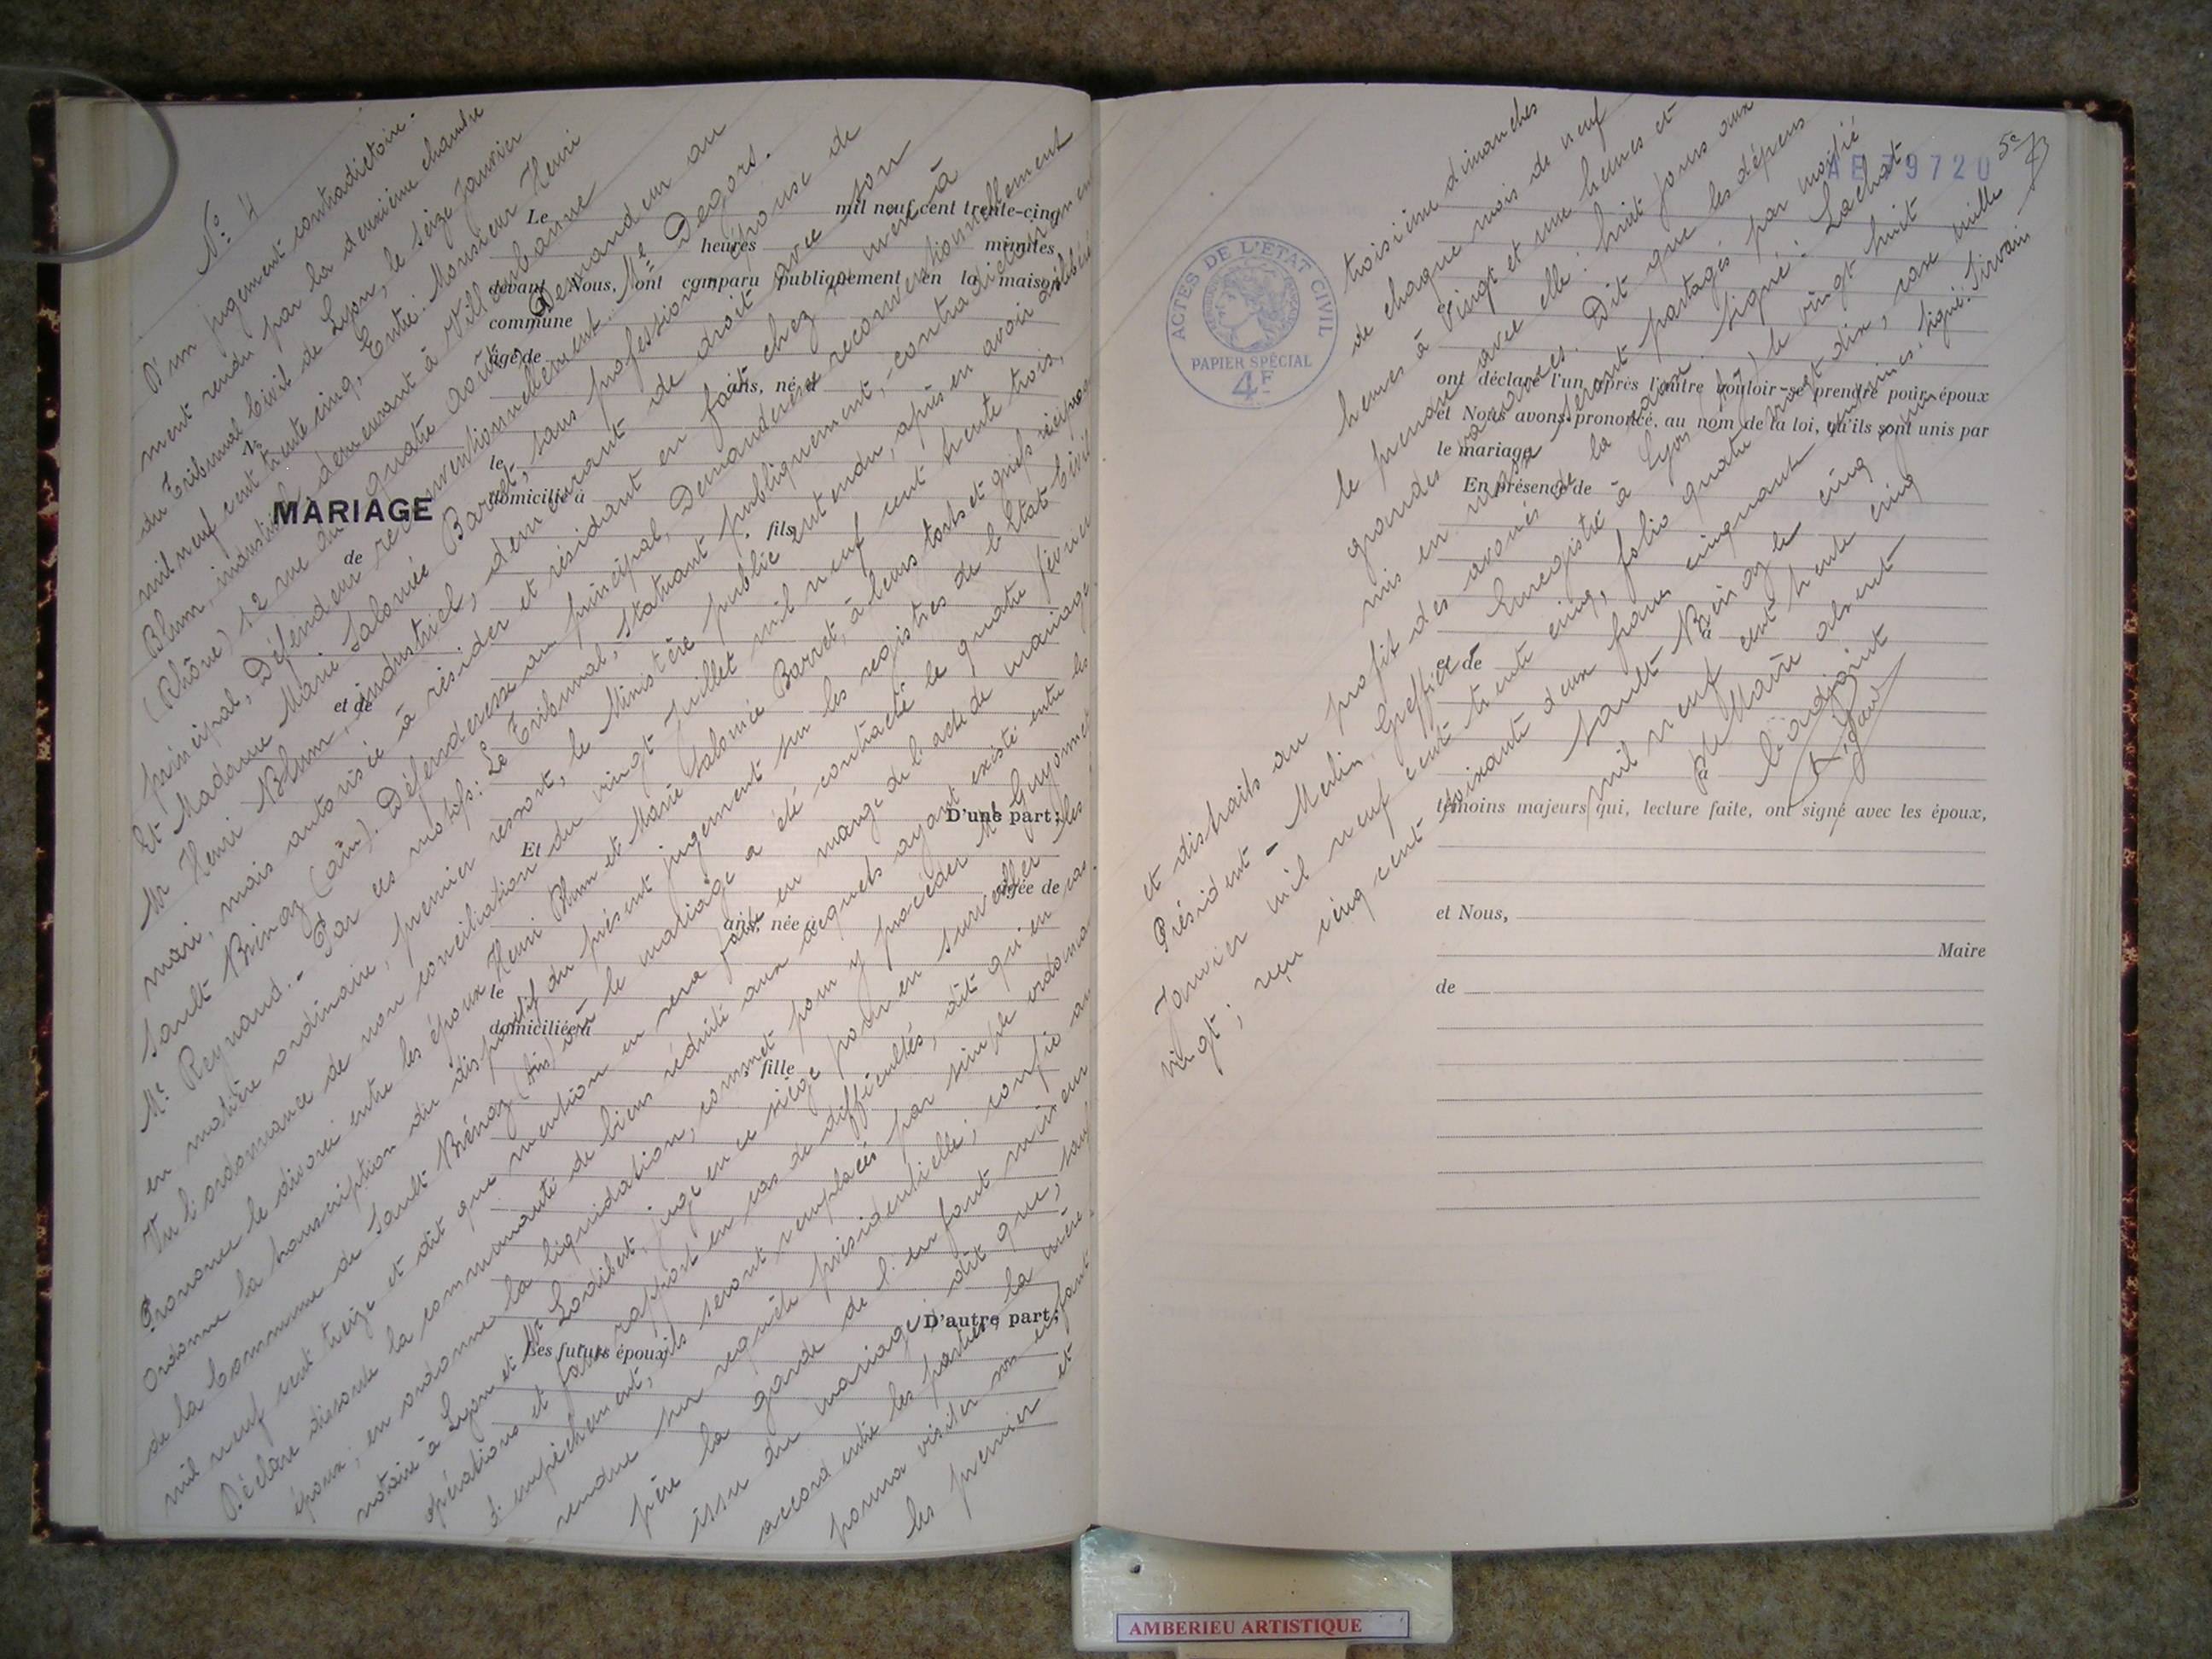 N° 4
D'un jugement contradictoire-
ment rendu par la deuxième chambre
du Tribunal Civil de Lyon, le seize Janvier
mil neuf cent trente cinq, Entre: Monsieur Henri
Blum, industriel, demeurant à Villeurbanne
(Rhône) 12 rue du quatre août, Demandeur au
principal, Défendeur reconventionnellement. Me Degors.
Et Madame Marie Salomée Barret, sans profession, épouse de
Mr Henri Blum, industriel, demeurant de droit avec son
mari, mais autorisée à résider et résidant en fait chez sa mère à
Sault-Brénaz (ain). Défenderesse au principal, Demanderesse reconventionnellement
Me Reynaud.- Par ces motifs: Le Tribunal, statuant publiquement, contradictoirement
en matière ordinaire, premier ressort, le Ministère public entendu, après en avoir délibéré
Vu l'ordonnance de non conciliation du vingt Juillet mil neuf cent trente trois,
Prononce le divorce entre les époux Henri Blum et Marie Salomée Barret, à leurs torts et griefs récipro
Ordonne la transcription du dispositif du présent jugement sur les registres de l'Etat Civil
de la Commune de Sault-Brénaz (Ain) où le mariage a été contracté le quatre février
mil neuf cent treize et dit que mention en sera faite en marge de l'acte de mariage
Déclare dissoute la communauté de biens réduite aux acquets ayant existé entre les
époux; en ordonne la liquidation, commet pour y procéder Me Guyonnet
notaire à Lyon et Mr Lordibert, juge en ce siège pour en surveiller les
opérations et faire rapport en cas de difficultés, dit qu'en cas
d'empêchement, ils seront remplacés par simple ordonna
rendue sur requête présidentielle; confie au
père la garde de l'enfant mineur
issu du mariage; dit que, sauf
accord entre les parties, la mère
pourra visiter son enfant
les premier et
Le mil neuf cent trente-cinq
heures minutes,
devant Nous, ont comparu publiquement en la maison
commune
âgé de
ans, né à
N°
le
domicilié à
MARIAGE
fils
de
et de
D'une part;
Et
âgée de
ans, née à
le
domiciliée à
, fille
D'autre part;
Les futurs époux
5e
AE 9720
ACTES DE L'ÉTAT CIVIL
PAPIER SPÉCIAL
4F
troisième dimanches
de chaque mois de neuf
heures à vingt et une heures et
le prendre avec elle: huit jours aux
grandes vacances. Dit que les dépens
mis en masse seront partagés par moitié
et distraits au profit des avoués de la cause. Signé: Lachat,
Président - Merlin, Greffier. Enregistré à Lyon le vingt huit
Janvier mil neuf cent trente cinq, folio quatre vingt dix, case mille
vingt; reçu cinq cent soixante deux francs cinquante centimes. Signé: Sirvain
Sault-Brénaz le cinq
mil neuf cent trente cinq
pr le Maire absent
l'adjoint
ont déclaré l'un après l'autre vouloir se prendre pour époux
et Nous avons prononcé, au nom de la loi, qu'ils sont unis par
le mariage.
En présence de
et de
témoins majeurs qui, lecture faite, ont signé avec les époux,
et Nous,
Maire
de
AMBERIEU ARTISTIQUE